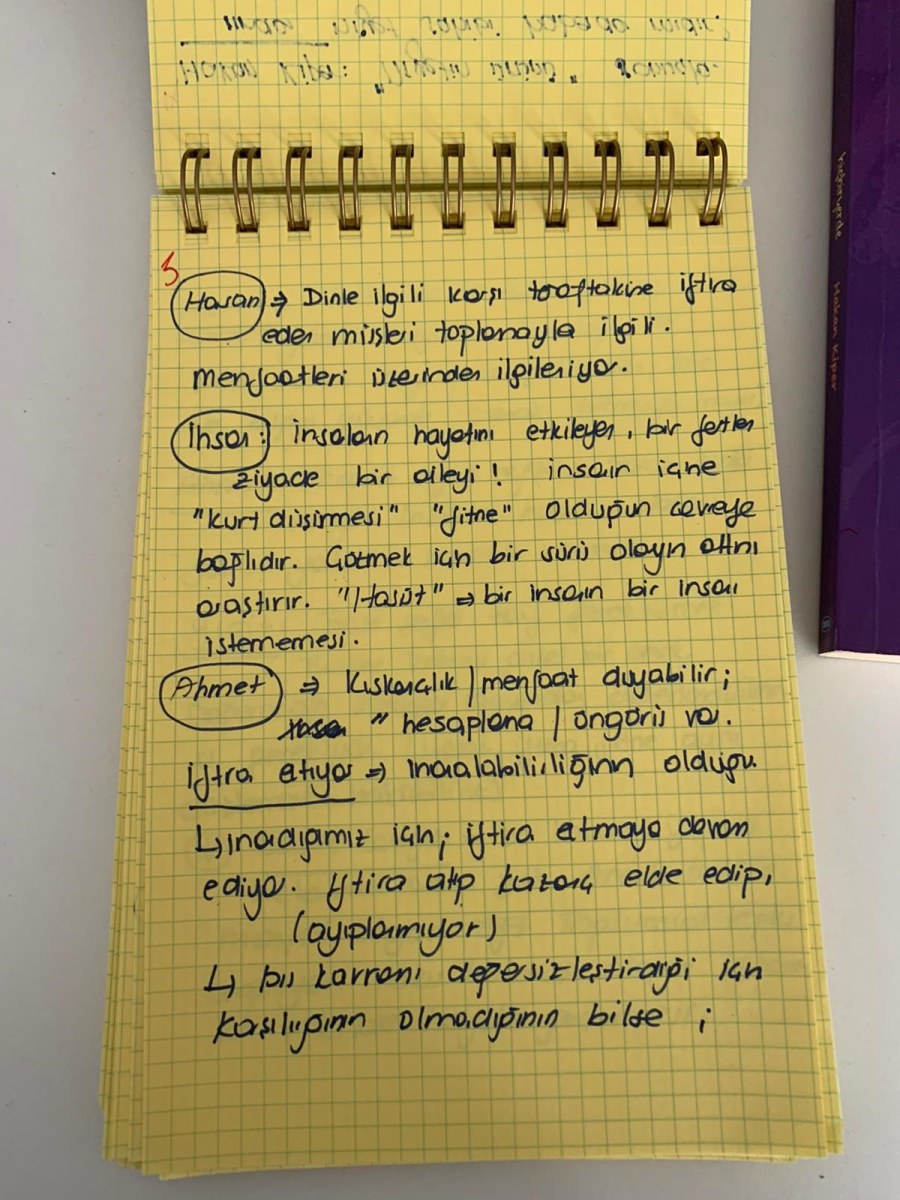 Hakan Kiper:
3
Hasan ⇒ Dinle ilgili karşı taraftakine iftira
eden missleri toplamayla ilgili.
menfaatleri üzerinden ilgileniyor.
İhsan: insanların hayatını etkileyen, bir fertten
ziyade bir aileyi! insanın içine
"kurt düşürmesi" "fitne" olduğun çevreye
bağlıdır. Gütmek için bir sürü olayın altını
araştırır. "Hasüt" ⇒ bir insanın bir insanı
istememesi.
Ahmet ⇒ Kıskançlık / menfaat duyabilir;
" hesaplama / öngörü var.
iftira atıyor ⇒ inanılabilirliğinin olduğu
↳ inandığımız için; iftira atmaya devam
ediyor. İftira atıp kazanç elde edip,
(ayıplanmıyor)
↳ bu kavramı değersizleştirdiği için
karşılığının olmadığının bilse ;
Hakan Kiper